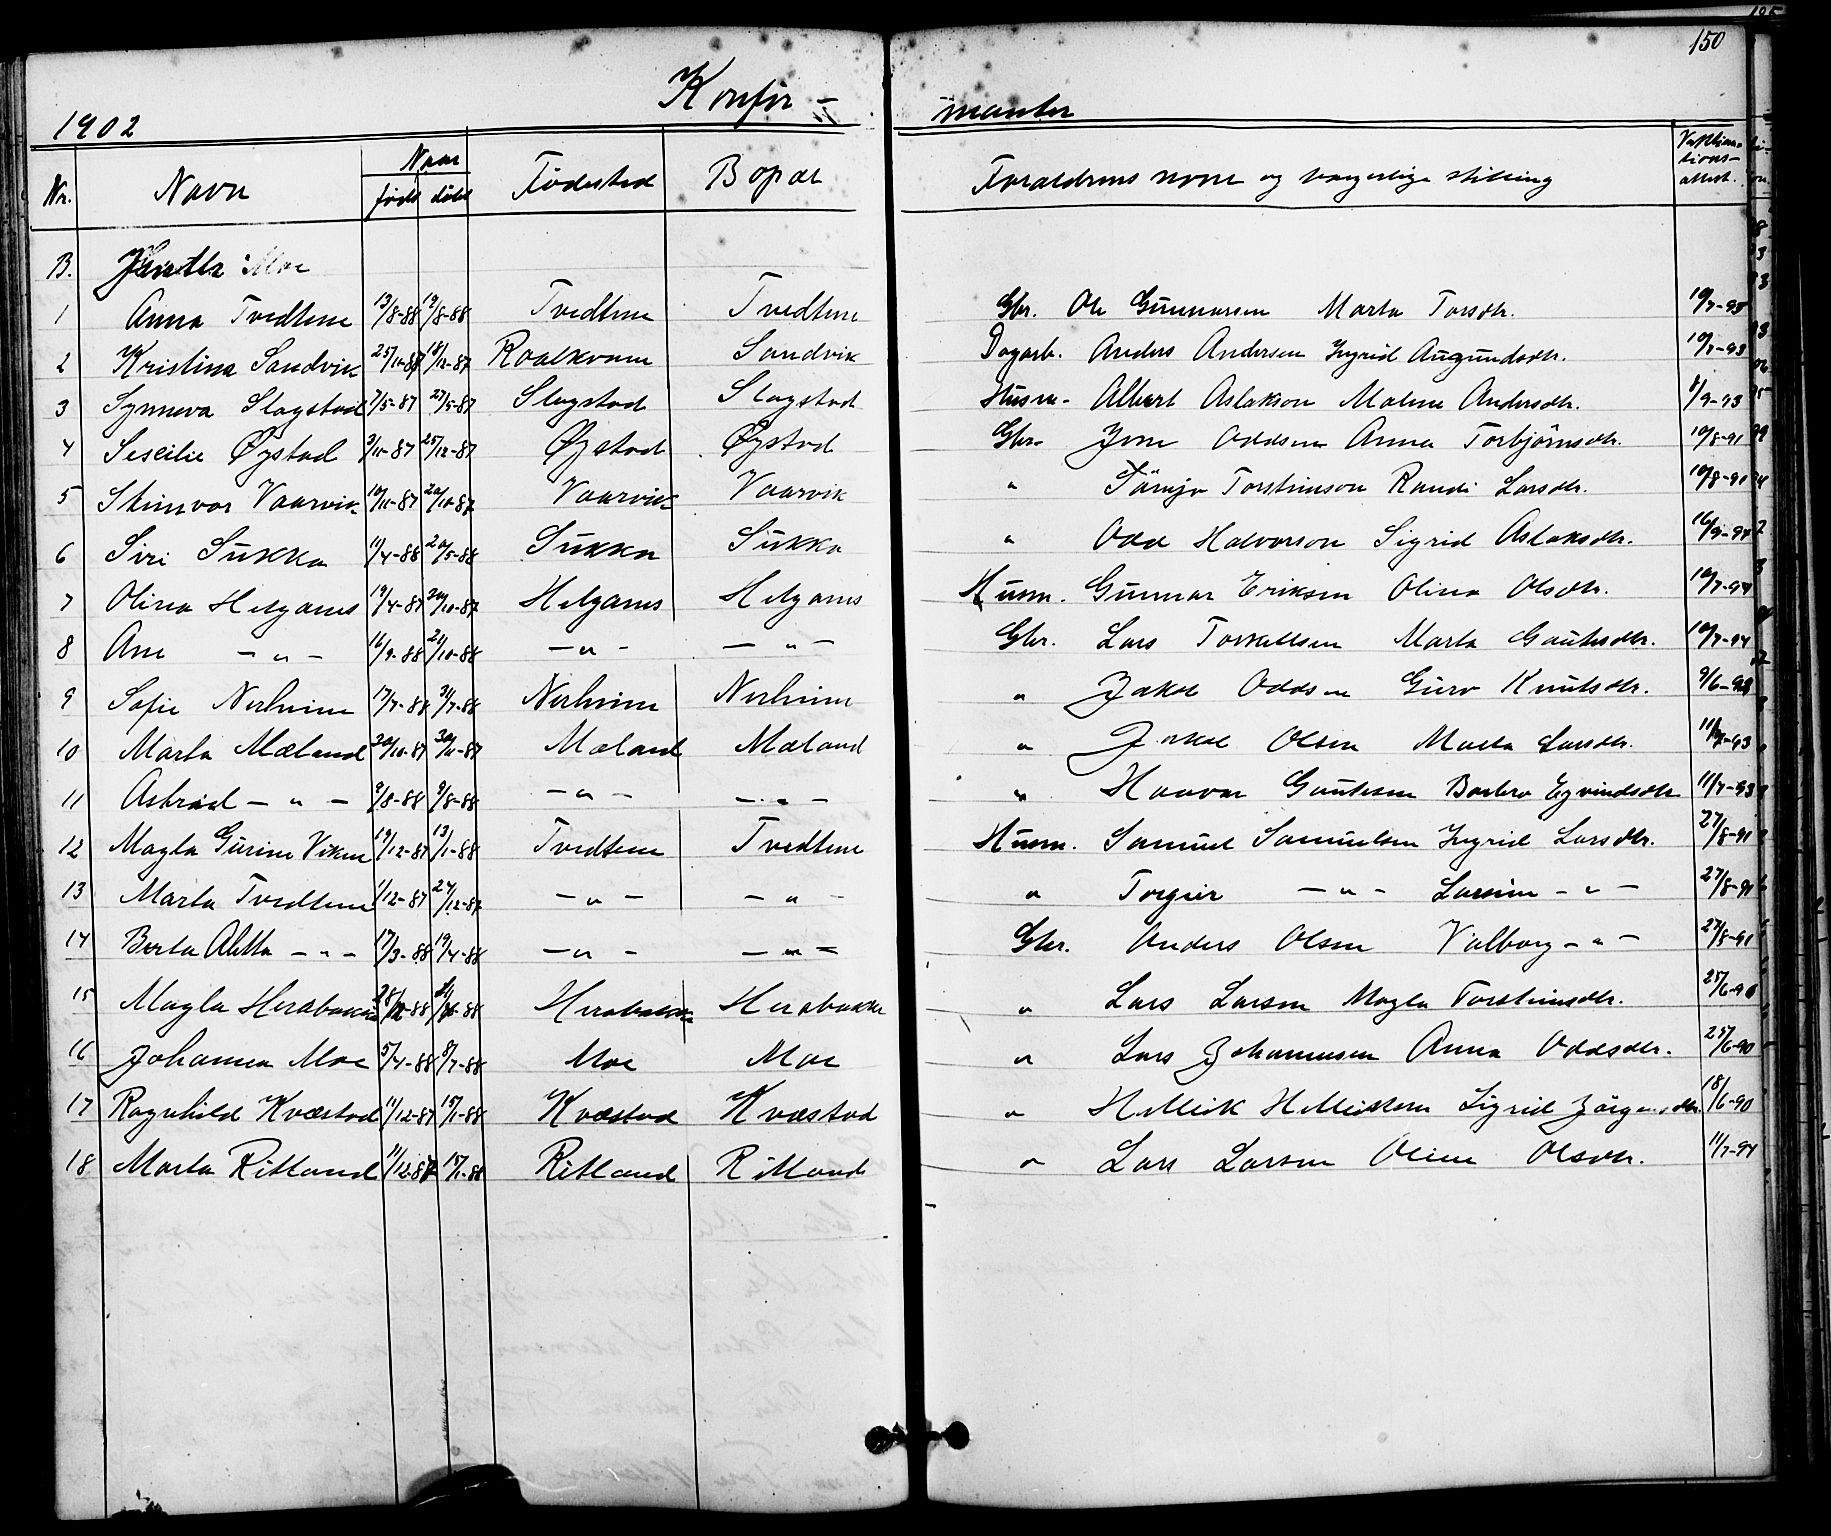 150
1902 Konfir- manter
Nr. Navn Naar født døbt Födested Bopæl Foraldrens navn og borgerlige stilling Vaktina-tions-attest.
B. Jenter Moe
1 Anna Tvedtene 13/8-88 19/8-88 Tvedtene Tvedtene Gbr. Ole Gunnarsen Marta Torsdtr. 10/7-93
2 Kristina Sandvik 25/10-87 18/12-87 Roalkvam Sandvik Dagarb. Anders Andersen Ingrid Augundsdtr. 10/7-93
3 Synneva Slagstad 7/5-87 27/5-87 Slagstad Slagstad Husm- Albert Aslakson Malene Andersdtr. 8/9-93
4 Seseilie Øystad 3/11-87 25/12-87 Øystad Øystad Gbr- Jone Oddsen Anna Torbjörnsdtr. 10/8-91
5 Steinvor Vaarvik 10/10-87 20/10-87 Vaarvik Vaarvik " Torsteinson Randi Larsdtr. 10/8-91
6 Siri Sukka 11/4-88 20/5-88 Sukka Sukka " Odd Halvorson Sigrid Aslaksdtr. 16/9-94
7 Olina Helganes 19/4-87 20/10-87 Helganes Helganes Husm. Gunnar Eriksen Olina Olsdtr. 10/7-94
8 Ane -"- 16/9-88 21/10-88 -"- -"- Gbr. Lars Torkellsen Marta Gautesdtr. 10/7-94
9 Sofie Nerheim 17/7-88 31/7-88 Nerheim Nerheim " Jakob Oddsen Guro Knutsdtr. 9/6-93
10 Marta Mæland 20/10-87 30/10-87 Mæland Mæland " Jakob Olsen Marta Larsdtr. 11/7-93
11 Astrid -"- 3/8-88 9/8-88 -"- -"- " Haavar Gautesen Barbro Eyvindsdtr 11/7-93
12 Magla Gurine Viken 19/12-87 13/1-88 Tvedtene Tvedtene Husm. Samuel Samuelsen Ingrid Larsdtr. 27/8-91
13 Marta Tvedtene 1/12-87 27/12-87 -"- -"- " Torgier -"- Larsine -"- 27/8-91
14 Berta Aletta -"- 17/3-88 19/4-88 -"- -"- Gbr. Anders Olsen Valborg -"- 27/8-91
15 Magla Herabakka Herabakka Herabakke " Lars Larsen Magla Torsteinsdtr. 25/6-90
16 Johanna Moe 5/4-88 8/7-88 Moe Moe " Lars Johannesen Anna Oddsdtr. 25/6-90
17 Ragnhild Kvæstad 11/12-87 15/1-88 Kvæstad Kvæstad " Helleik Helleiksen Sigrid Jörgensdtr. 18/6-90
18 Marta Ritland 11/12-87 15/1-88 Ritland Ritland " Lars Larsen Oline Olsdtr. 11/7-94